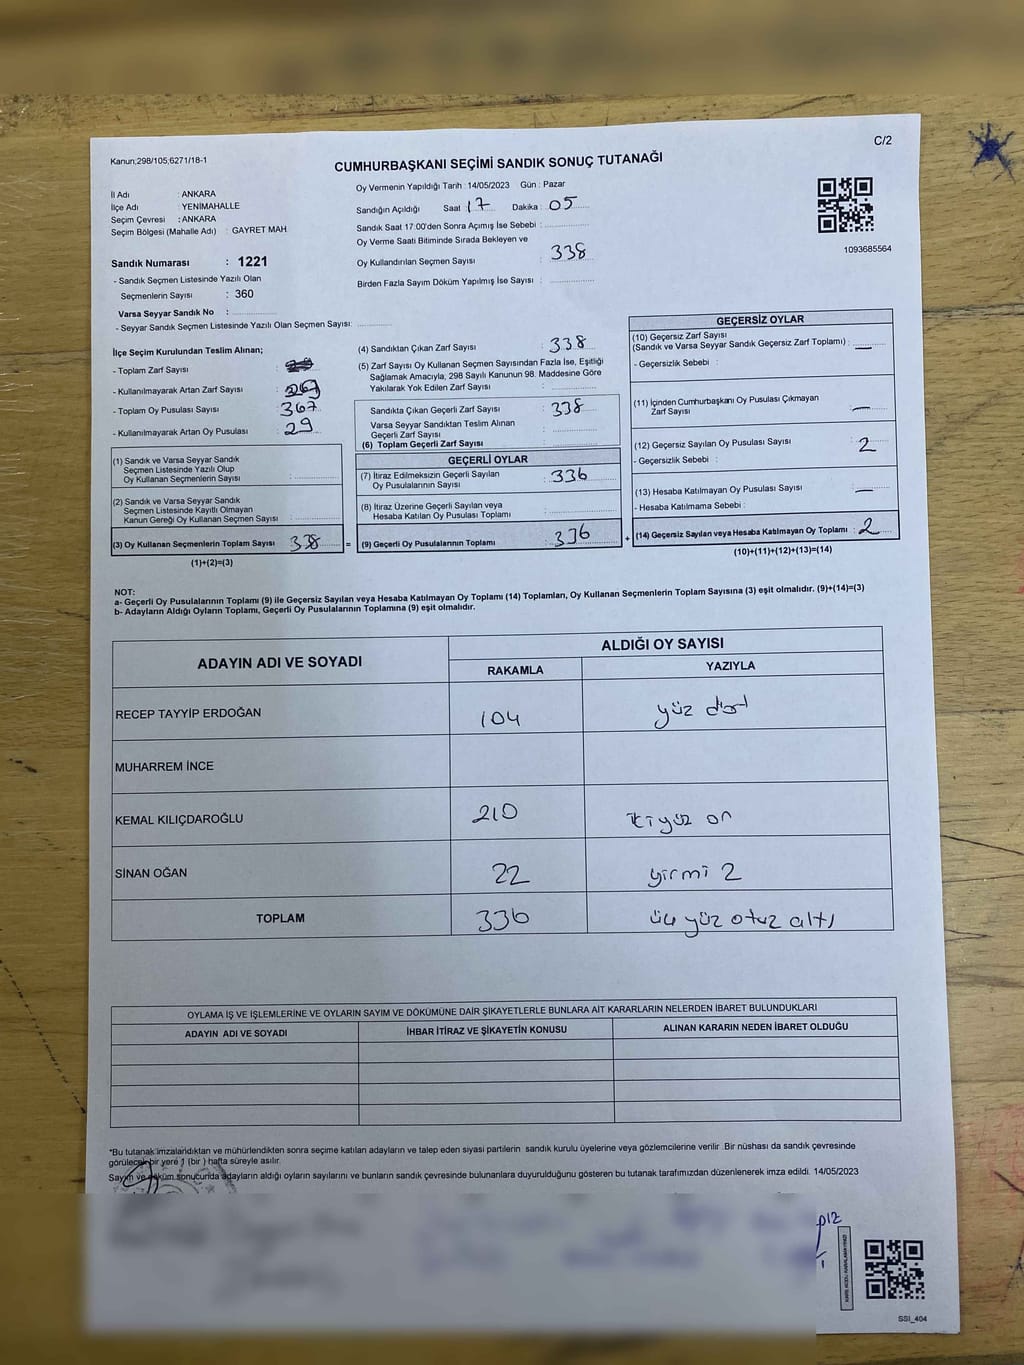 C/2
Kanun;298/105;6271/18-1
CUMHURBAŞKANI SEÇİMİ SANDIK SONUÇ TUTANAĞI
İl Adı : ANKARA
İlçe Adı : YENİMAHALLE
Seçim Çevresi : ANKARA
Seçim Bölgesi (Mahalle Adı) : GAYRET MAH.
Sandık Numarası : 1221
- Sandık Seçmen Listesinde Yazılı Olan
Seçmenlerin Sayısı : 360
Varsa Seyyar Sandık No :
- Seyyar Sandık Seçmen Listesinde Yazılı Olan Seçmen Sayısı:
Oy Vermenin Yapıldığı Tarih : 14/05/2023 Gün : Pazar
Sandığın Açıldığı Saat : 17 Dakika : 05
Sandık Saat 17:00'den Sonra Açımış İse Sebebi :
Oy Verme Saati Bitiminde Sırada Bekleyen ve
Oy Kullandırılan Seçmen Sayısı : 338
Birden Fazla Sayım Döküm Yapılmış İse Sayısı :
1093685564
İlçe Seçim Kurulundan Teslim Alınan;
- Toplam Zarf Sayısı :
- Kullanılmayarak Artan Zarf Sayısı :
- Toplam Oy Pusulası Sayısı : 367
- Kullanılmayarak Artan Oy Pusulası : 29
(1) Sandık ve Varsa Seyyar Sandık
Seçmen Listesinde Yazılı Olup
Oy Kullanan Seçmenlerin Sayısı :
(2) Sandık ve Varsa Seyyar Sandık
Seçmen Listesinde Kayıtlı Olmayan
Kanun Gereği Oy Kullanan Seçmen Sayısı :
(3) Oy Kullanan Seçmenlerin Toplam Sayısı : 338 =
(1)+(2)=(3)
(4) Sandıktan Çıkan Zarf Sayısı : 338
(5) Zarf Sayısı Oy Kullanan Seçmen Sayısından Fazla İse, Eşitliği
Sağlamak Amacıyla, 298 Sayılı Kanunun 98. Maddesine Göre
Yakılarak Yok Edilen Zarf Sayısı :
Sandıkta Çıkan Geçerli Zarf Sayısı : 338
Varsa Seyyar Sandıktan Teslim Alınan
Geçerli Zarf Sayısı :
(6) Toplam Geçerli Zarf Sayısı :
GEÇERLİ OYLAR
(7) İtiraz Edilmeksizin Geçerli Sayılan
Oy Pusulalarının Sayısı : 336
(8) İtiraz Üzerine Geçerli Sayılan veya
Hesaba Katılan Oy Pusulası Toplamı :
(9) Geçerli Oy Pusulalarının Toplamı : 336 +
GEÇERSİZ OYLAR
(10) Geçersiz Zarf Sayısı
(Sandık ve Varsa Seyyar Sandık Geçersiz Zarf Toplamı) : —
- Geçersizlik Sebebi :
(11) İçinden Cumhurbaşkanı Oy Pusulası Çıkmayan
Zarf Sayısı : —
(12) Geçersiz Sayılan Oy Pusulası Sayısı : 2
- Geçersizlik Sebebi :
(13) Hesaba Katılmayan Oy Pusulası Sayısı : —
- Hesaba Katılmama Sebebi :
(14) Geçersiz Sayılan veya Hesaba Katılmayan Oy Toplamı : 2
(10)+(11)+(12)+(13)=(14)
NOT:
a- Geçerli Oy Pusulalarının Toplamı (9) ile Geçersiz Sayılan veya Hesaba Katılmayan Oy Toplamı (14) Toplamları, Oy Kullanan Seçmenlerin Toplam Sayısına (3) eşit olmalıdır. (9)+(14)=(3)
b- Adayların Aldığı Oyların Toplamı, Geçerli Oy Pusulalarının Toplamına (9) eşit olmalıdır.
ADAYIN ADI VE SOYADI ALDIĞI OY SAYISI
RAKAMLA YAZIYLA
RECEP TAYYİP ERDOĞAN 104 yüz dört
MUHARREM İNCE
KEMAL KILIÇDAROĞLU 210 ikiyüz on
SİNAN OĞAN 22 yirmi 2
TOPLAM 336 üç yüz otuz altı
OYLAMA İŞ VE İŞLEMLERİNE VE OYLARIN SAYIM VE DÖKÜMÜNE DAİR ŞİKAYETLERLE BUNLARA AİT KARARLARIN NELERDEN İBARET BULUNDUKLARI
ADAYIN ADI VE SOYADI İHBAR İTİRAZ VE ŞİKAYETİN KONUSU ALINAN KARARIN NEDEN İBARET OLDUĞU
*Bu tutanak imzalandıktan ve mühürlendikten sonra seçime katılan adayların ve talep eden siyasi partilerin sandık kurulu üyelerine veya gözlemcilerine verilir .Bir nüshası da sandık çevresinde
görülecek bir yere 1 (bir ) hafta süreyle asılır.
Sayım ve döküm sonucunda adayların aldığı oyların sayılarını ve bunların sandık çevresinde bulunanlara duyurulduğunu gösteren bu tutanak tarafımızdan düzenlenerek imza edildi. 14/05/2023
SSI_404